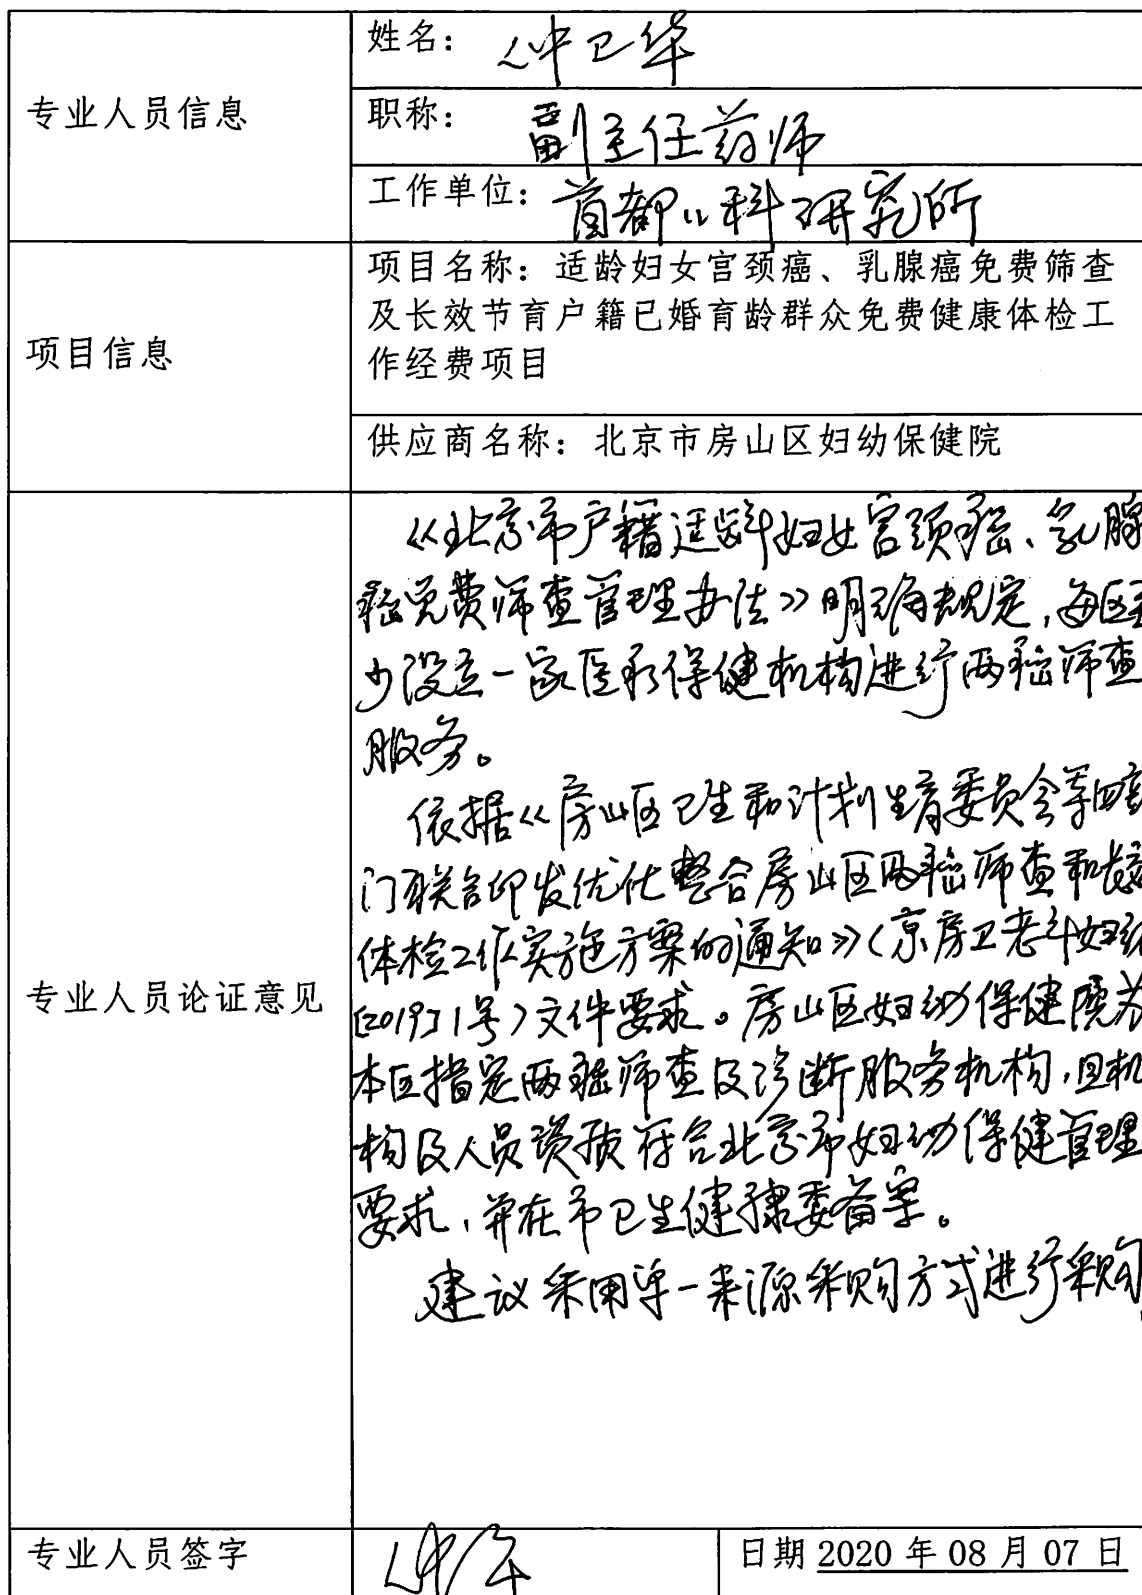 专业人员信息
姓名：仲卫华
职称：副主任药师
工作单位：首都儿科研究所
项目信息
项目名称：适龄妇女宫颈癌、乳腺癌免费筛查
及长效节育户籍已婚育龄群众免费健康体检工
作经费项目
供应商名称：北京市房山区妇幼保健院
专业人员论证意见
《北京市户籍适龄妇女宫颈癌、乳腺
癌免费筛查管理办法》明确规定，每区至
少设立一家医疗保健机构进行两癌筛查
服务。
依据《房山区卫生和计划生育委员会等四部
门联合印发优化整合房山区两癌筛查和长效
体检工作实施方案的通知》（京房卫老年妇幼
[2019]1号）文件要求。房山区妇幼保健院为
本区指定两癌筛查及诊断服务机构，且机
构及人员资质符合北京市妇幼保健管理
要求，并在市卫生健康委备案。
建议采用单一来源采购方式进行采购
专业人员签字
日期 2020 年 08 月 07 日